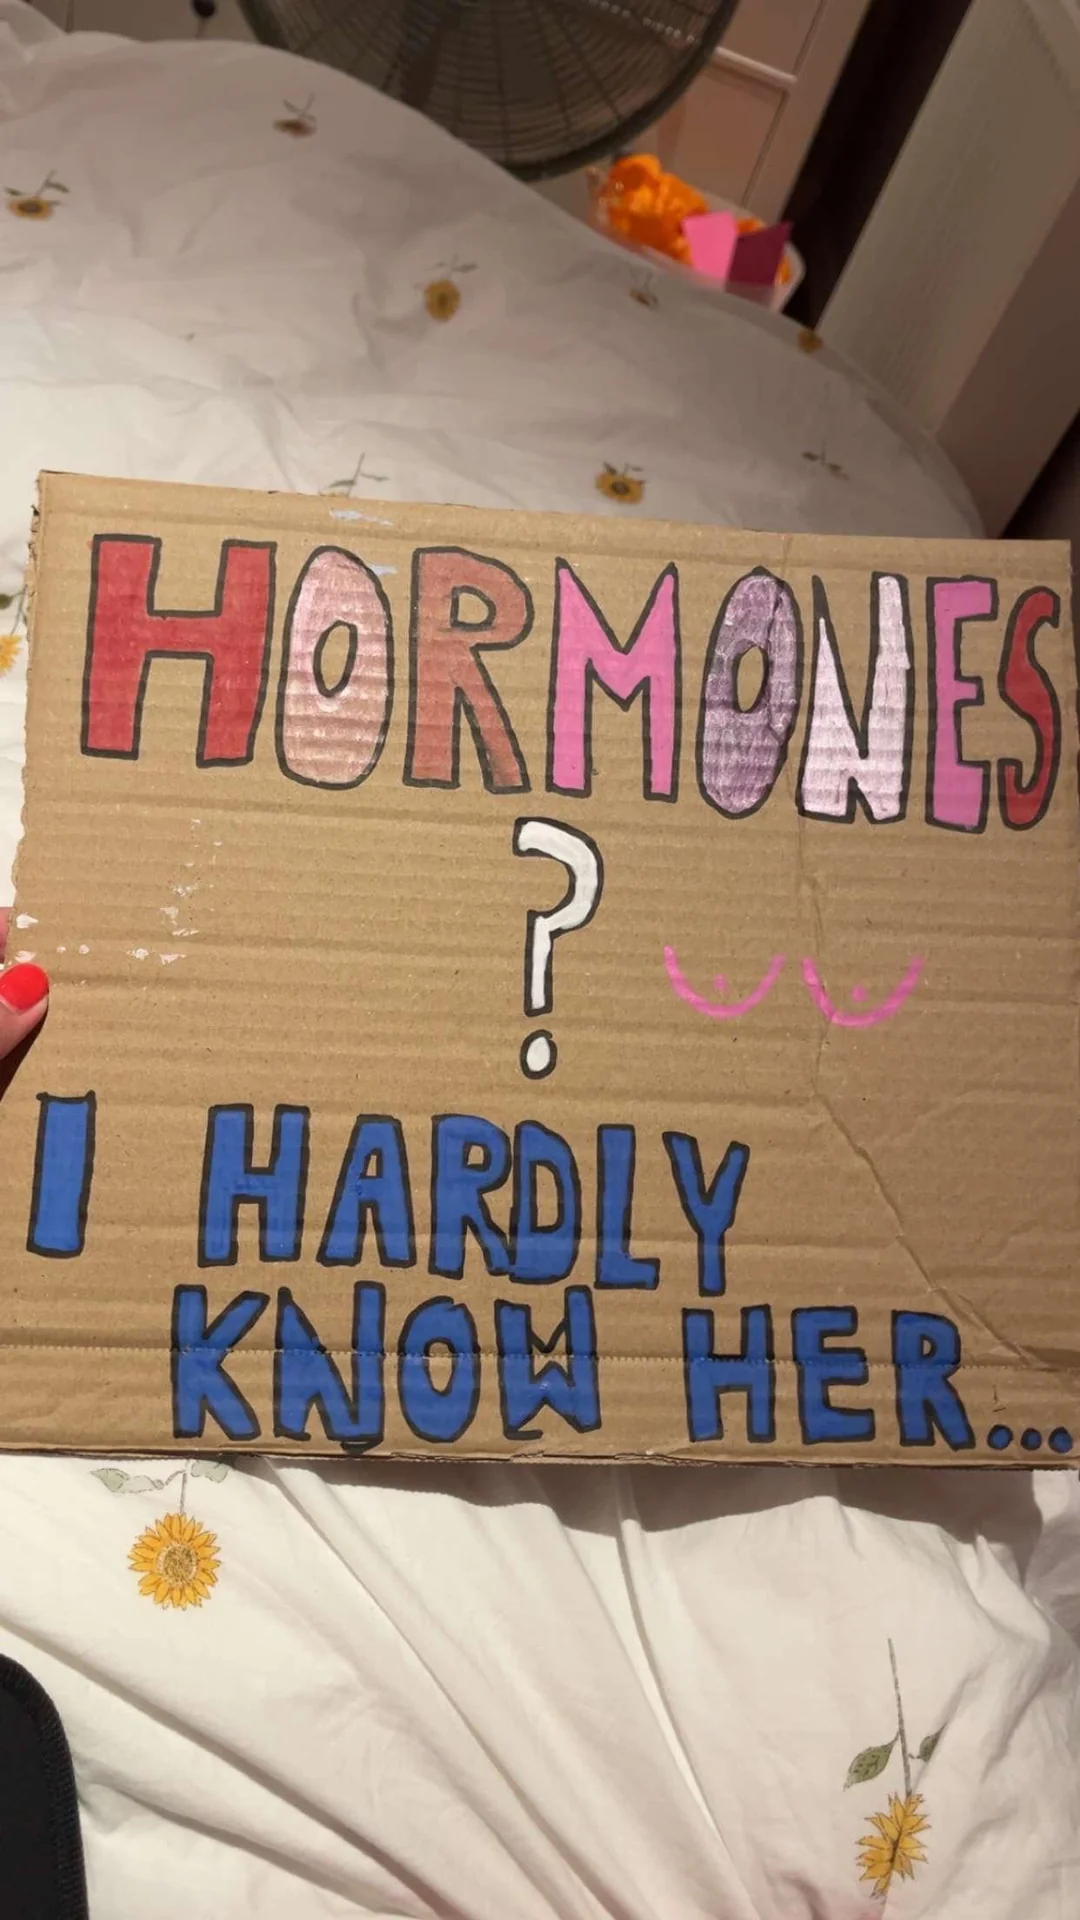 HORMONES
?
I HARDLY
KNOW HER...